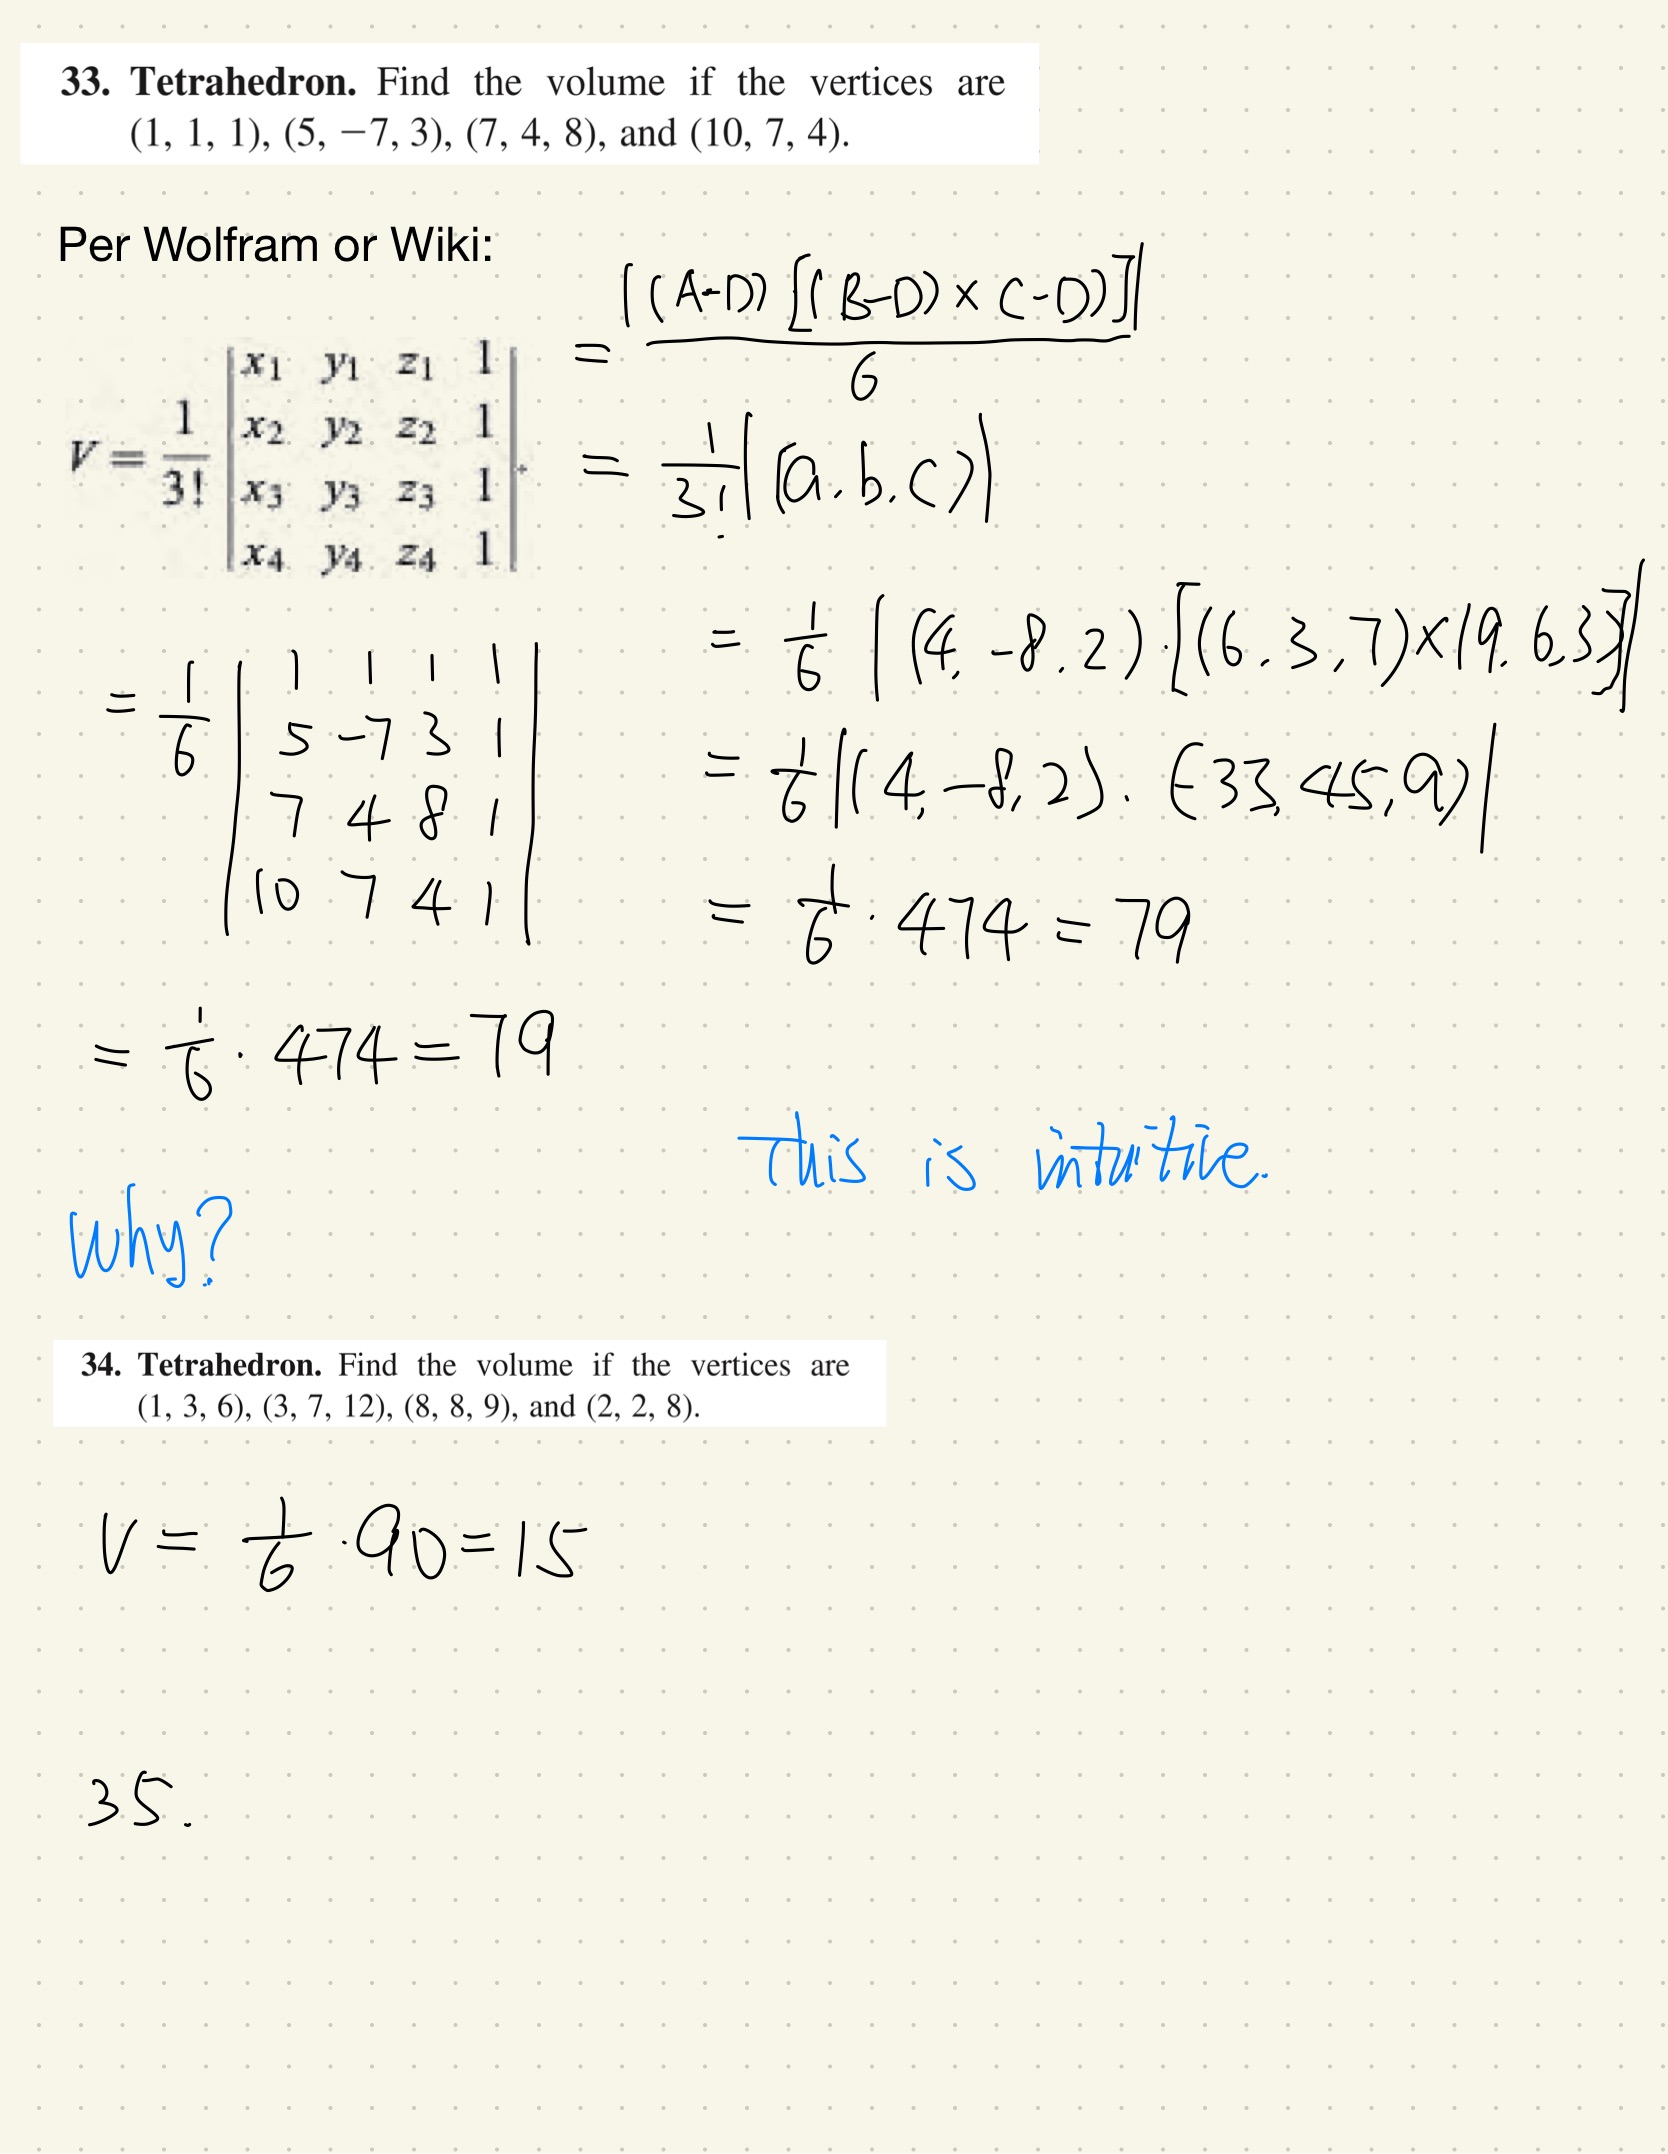 33. Tetrahedron. Find the volume if the vertices are
(1, 1, 1), (5, −7, 3), (7, 4, 8), and (10, 7, 4).
Per Wolfram or Wiki:
V = 1/3! | x1 y1 z1 1 |
| x2 y2 z2 1 |
| x3 y3 z3 1 |
| x4 y4 z4 1 | .
= |(A-D) [(B-D) × C-D)]| / 6
= 1/3! |(a. b. c)|
= 1/6 | 1 1 1 1 |
| 5 -7 3 1 |
| 7 4 8 1 |
| 10 7 4 1 |
= 1/6 · 474 = 79
why?
= 1/6 | (4, -8, 2) · [(6, 3, 7) × (9, 6, 3)] |
= 1/6 |(4, -8, 2) · (-33, 45, 9)|
= 1/6 · 474 = 79
This is intuitive.
34. Tetrahedron. Find the volume if the vertices are
(1, 3, 6), (3, 7, 12), (8, 8, 9), and (2, 2, 8).
V = 1/6 · 90 = 15
35.